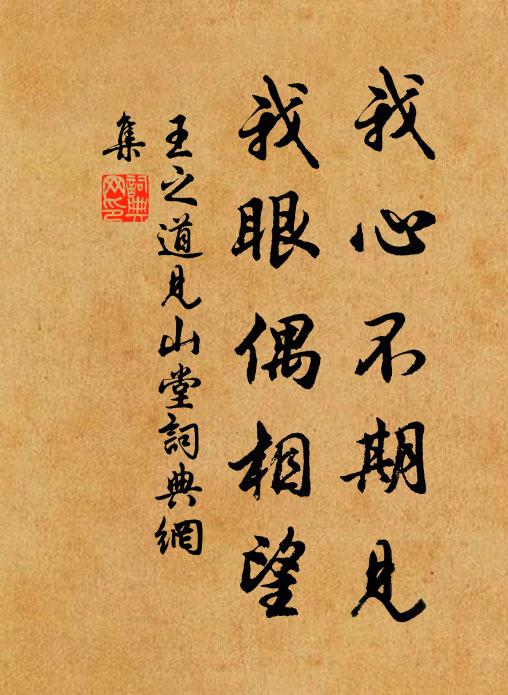 我心不期見
我眼偶相望
王之道見山堂詞典網
集
詞典
网印